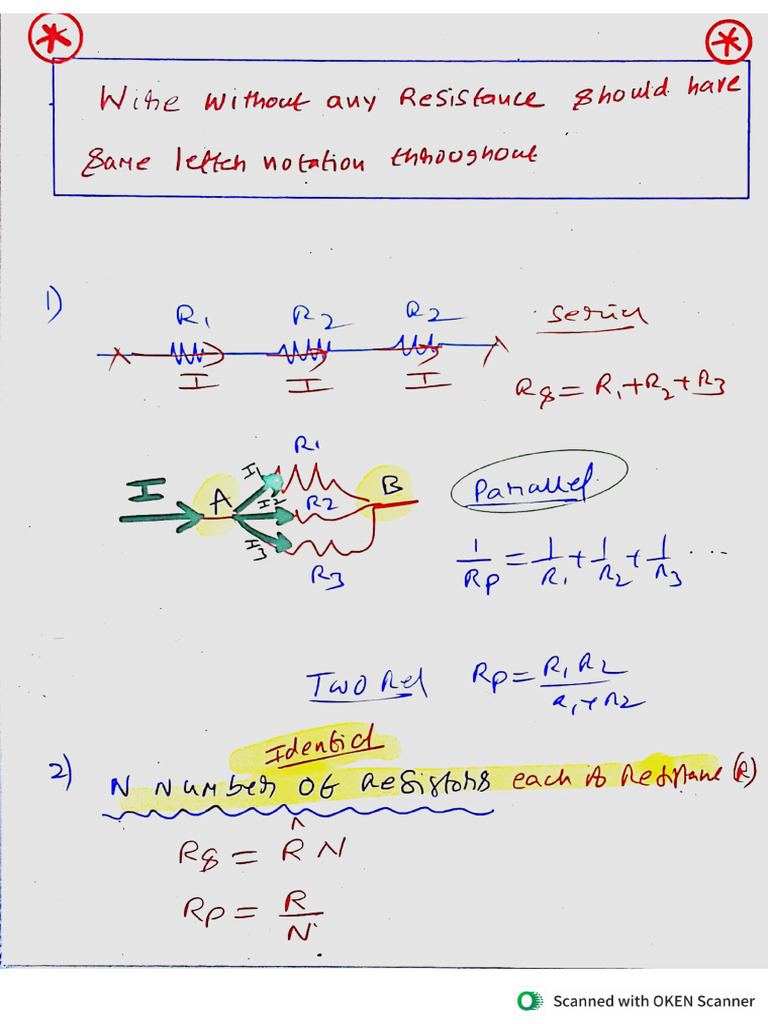 Wire without any Resistance should have
same letter notation throughout
1)
R1 R2 R2
I I I
series
Rs = R1+R2+R3
I A I1 I2 I3 R1 R2 R3 B
Parallel
1/Rp = 1/R1 + 1/R2 + 1/R3 ...
Two Rel Rp = R1 R2 / R1+R2
Identicl
2) N Number of Resistors each is Resistane (R)
Rs = R N
Rp = R/N
Scanned with OKEN Scanner